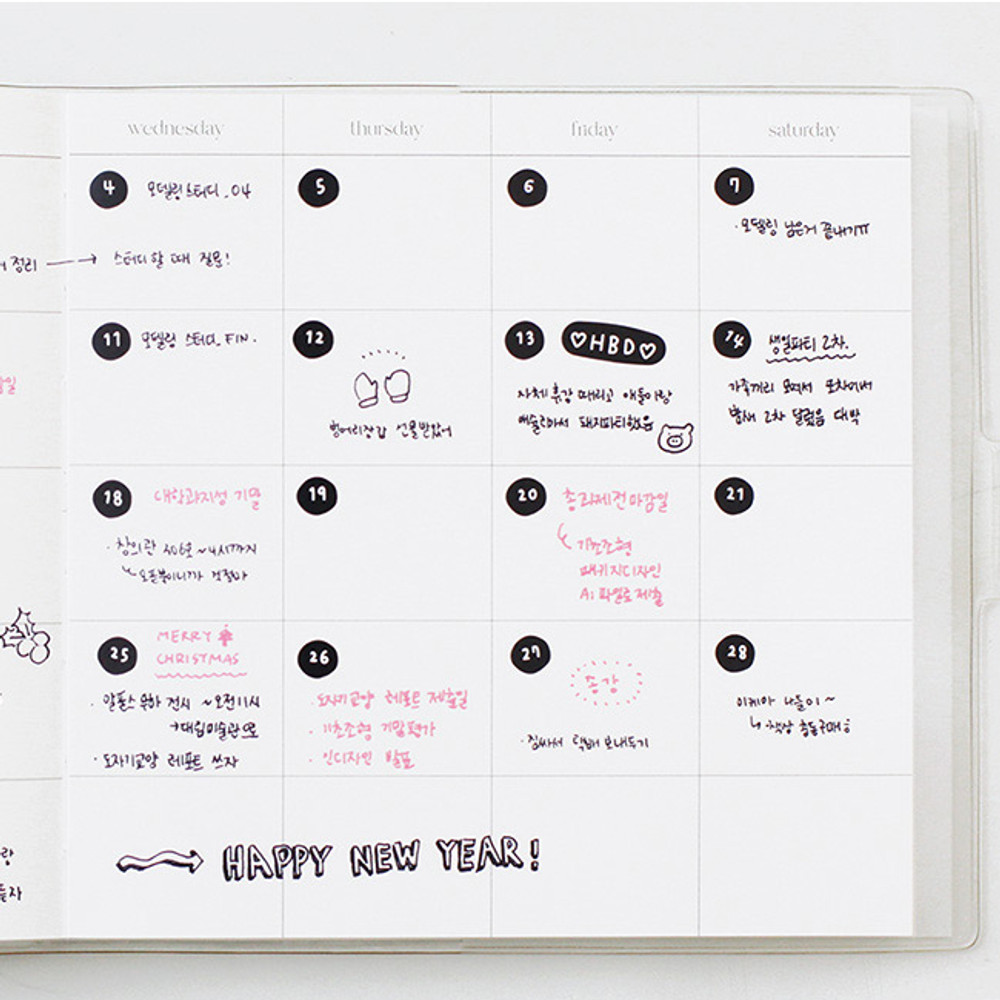 wednesday
thursday
friday
saturday
4 모델링 스터디_04
정리
스터디 할 때 질문!
5
6
7
· 모델링 남은거 끝내기ㅠ
11 모델링 스터디_FIN.
12
벙어리장갑 선물받았어
13 ♡HBD♡
자체 휴강 때리고 애들이랑
예슬이와서 돼지파티했음
14 생일파티 2차.
가족끼리 모여서
밤새 2차 달렸음 대박
18 대학과지성 기말
· 창의관 306호 ~4시까지
오픈북이니까 걱정마
19
20 총과제전 마감일
기초조형
패키지디자인
Ai 파일로 제출
21
25 MERRY
CHRISTMAS
· 알폰스 무하 전시 ~오전11시
→대림미술관으로
· 도자기교양 레포트 쓰자
26
· 도자기교양 레포트 제출일
· 기초조형 기말평가
· 인디자인 발표
27
종강
· 짐싸서 택배 보내두기
28
이케아 나들이~
책상 충동구매
HAPPY NEW YEAR!